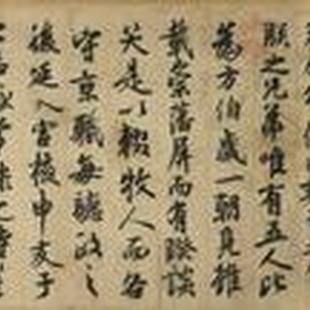 朕之兄弟唯有五人比
為方伯歲一朝見雖
載崇藩屏而有睽談
笑是以輟牧人而各
守京職每聽政之
後延入宮掖申友于